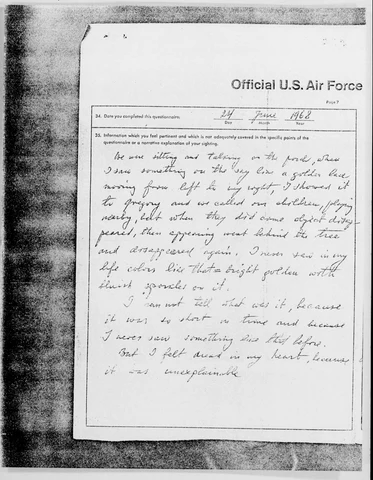 Official U.S. Air Force
Page 7
24. Date you completed this questionnaire: 24 June 1968
Day Month Year
25. Information which you feel pertinent and which is not adequately covered in the specific points of the
questionnaire or a narrative explanation of your sighting.
We are sitting and talking on the porch, when
I saw something on the sky like a golden
moving from left to my right, I showed it
to gregory and we called our children, playing
nearby, but when they did come object disap-
peared, then appearing went behind the tree
and disappeared again. I never saw in my
life colors like that a bright golden with
sparcles on it.
I can not tell what was it, because
it was so short in time and because
I never saw something like that before.
But I felt dread in my heart, because
it was unexplainable